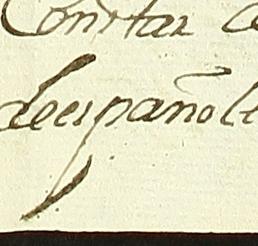 Constar
deespañol